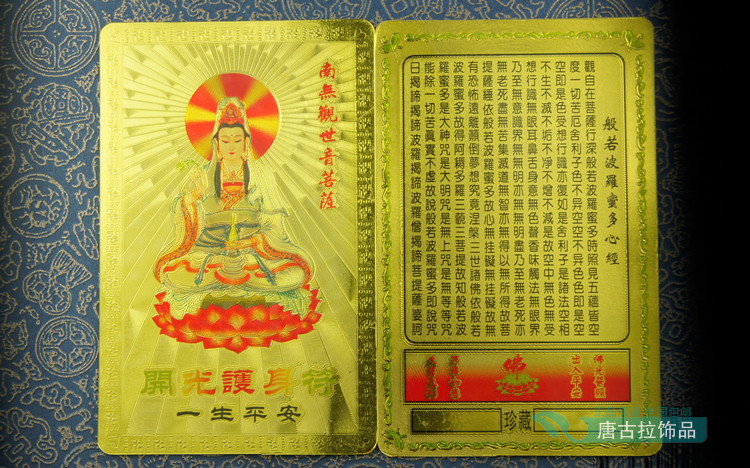 南無觀世音菩薩
開光護身符
一生平安
般若波羅蜜多心經
觀自在菩薩行深般若波羅蜜多時照見五蘊皆空
度一切苦厄舍利子色不异空空不异色色即是空
空即是色受想行識亦復如是舍利子是諸法空相
不生不滅不垢不净不增不減是故空中無色無受
想行識無眼耳鼻舌身意無色聲香味觸法無眼界
乃至無意識界無無明亦無無明盡乃至無老死亦
無老死盡無苦集滅道無智亦無得以無所得故菩
提薩埵依般若波羅蜜多故心無挂礙無挂礙故無
有恐怖遠離顛倒夢想究竟涅槃三世諸佛依般若
波羅蜜多故得阿耨多羅三藐三菩提故知般若波
羅蜜多是大神咒是大明咒是無上咒是無等等咒
能除一切苦真實不虛故說般若波羅蜜多咒即說咒
曰揭諦揭諦波羅揭諦波羅僧揭諦菩提薩婆訶
佛光普照
出入平安
佛
珍藏
唐古拉饰品